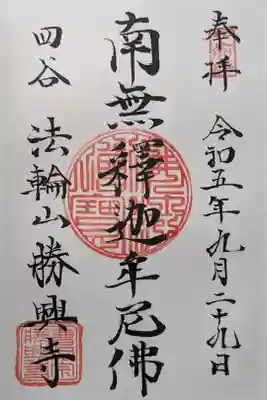 奉拝
令和五年九月二十九日
南無釋迦牟尼佛
四谷 法輪山勝興寺